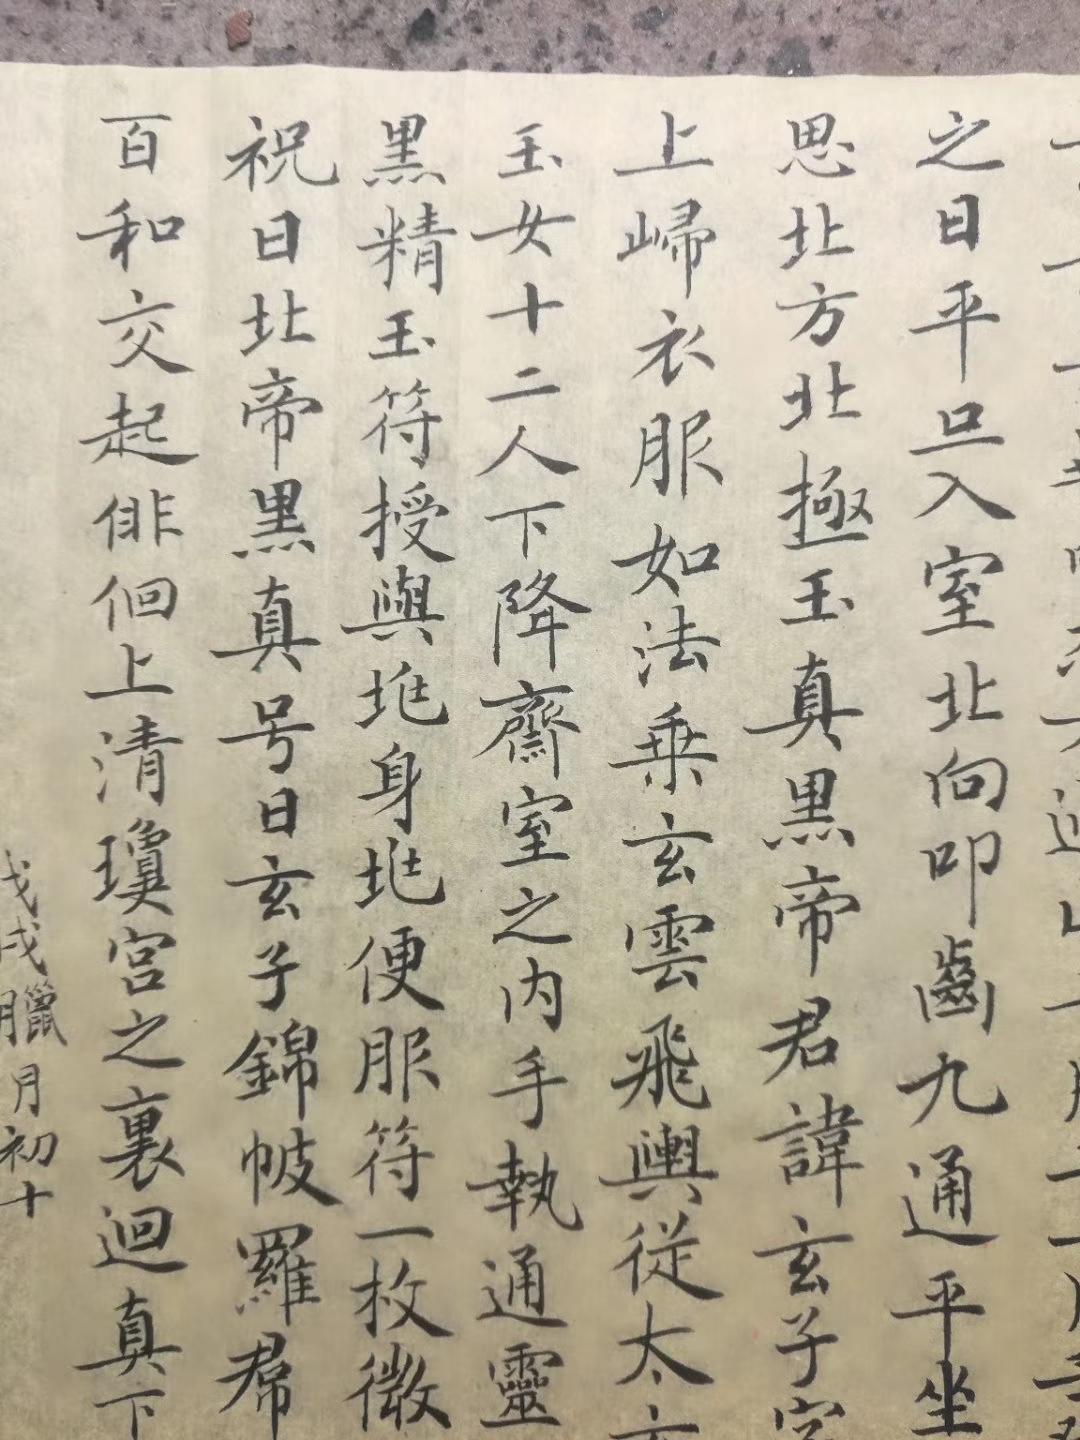 之日平旦入室北向叩齒九通平坐
思北方北極玉真黑帝君諱玄子字
上歸衣服如法乗玄雲飛輿従太玄
玉女十二人下降齋室之内手執通靈
黒精玉符授與地身地便服符一枚微
祝曰北帝黒真号曰玄子錦帔羅帬
百和交起俳佪上清瓊宮之裏迴真下
戊戌臘月初十